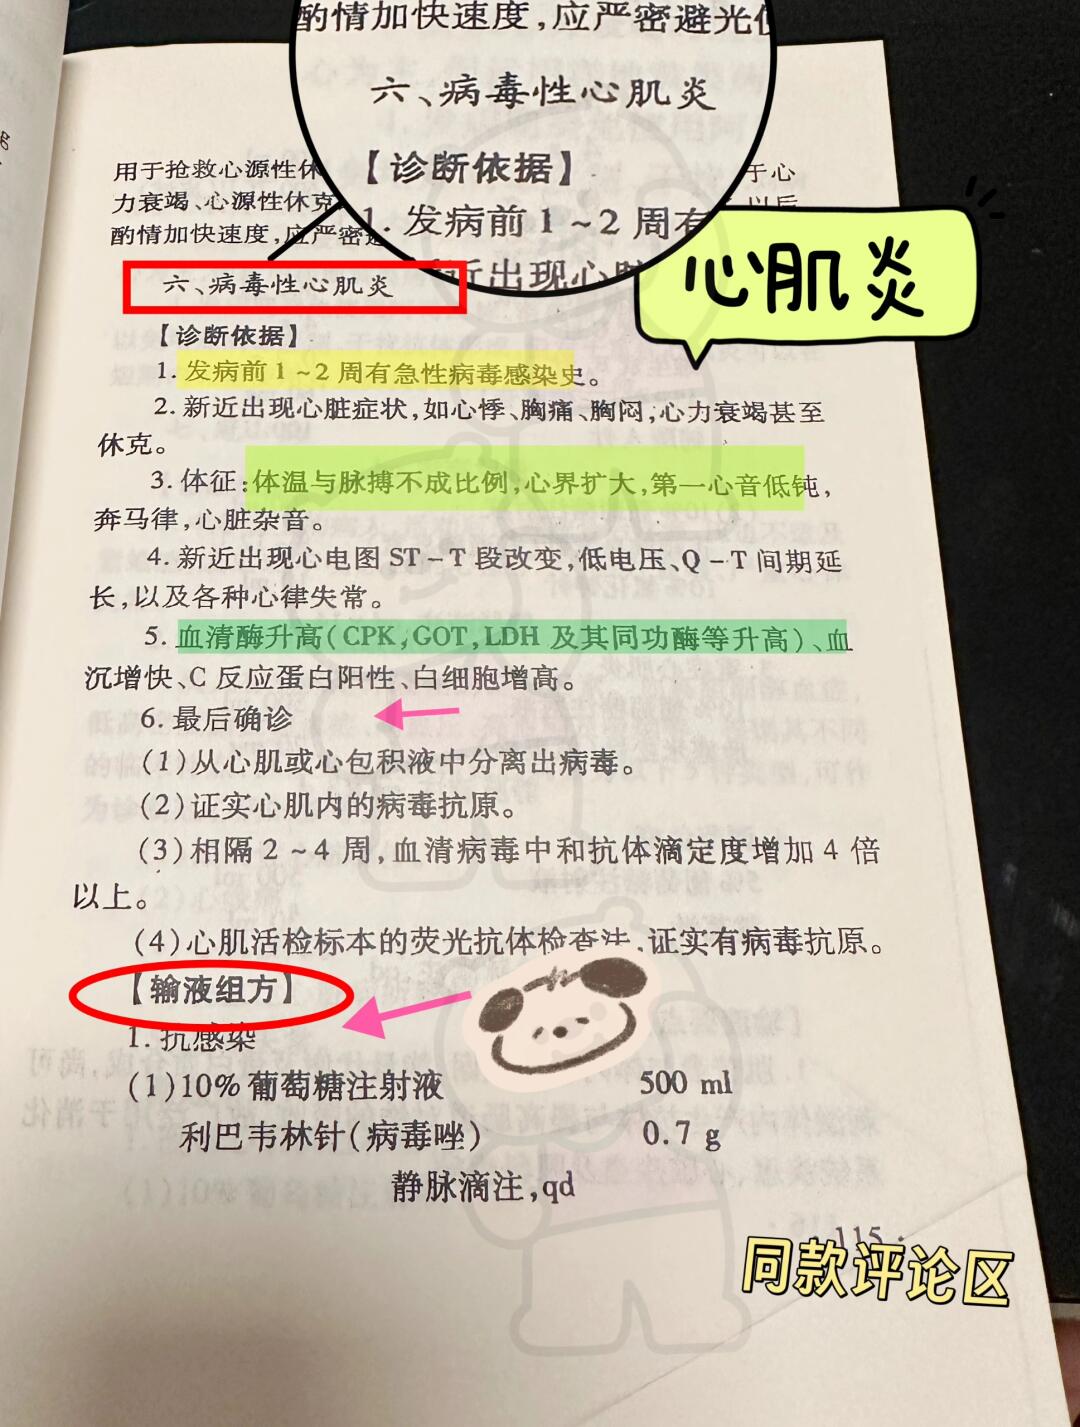 酌情加快速度,应严密避光使
六、病毒性心肌炎
【诊断依据】
1.发病前1~2周有
近出现心脏
心肌炎
用于抢救心源性休
于心
力衰竭、心源性休克
以后
酌情加快速度,应严密避
六、病毒性心肌炎
【诊断依据】
1.发病前1~2周有急性病毒感染史。
2.新近出现心脏症状,如心悸、胸痛、胸闷,心力衰竭甚至
休克。
3.体征:体温与脉搏不成比例,心界扩大,第一心音低钝,
奔马律,心脏杂音。
4.新近出现心电图ST-T段改变,低电压、Q-T间期延
长,以及各种心律失常。
5.血清酶升高(CPK,GOT,LDH及其同功酶等升高)、血
沉增快、C反应蛋白阳性、白细胞增高。
6.最后确诊
(1)从心肌或心包积液中分离出病毒。
(2)证实心肌内的病毒抗原。
(3)相隔2~4周,血清病毒中和抗体滴定度增加4倍
以上。
(4)心肌活检标本的荧光抗体检查法,证实有病毒抗原。
【输液组方】
1.抗感染
(1)10%葡萄糖注射液 500 ml
利巴韦林针(病毒唑) 0.7 g
静脉滴注,qd
·115·
同款评论区